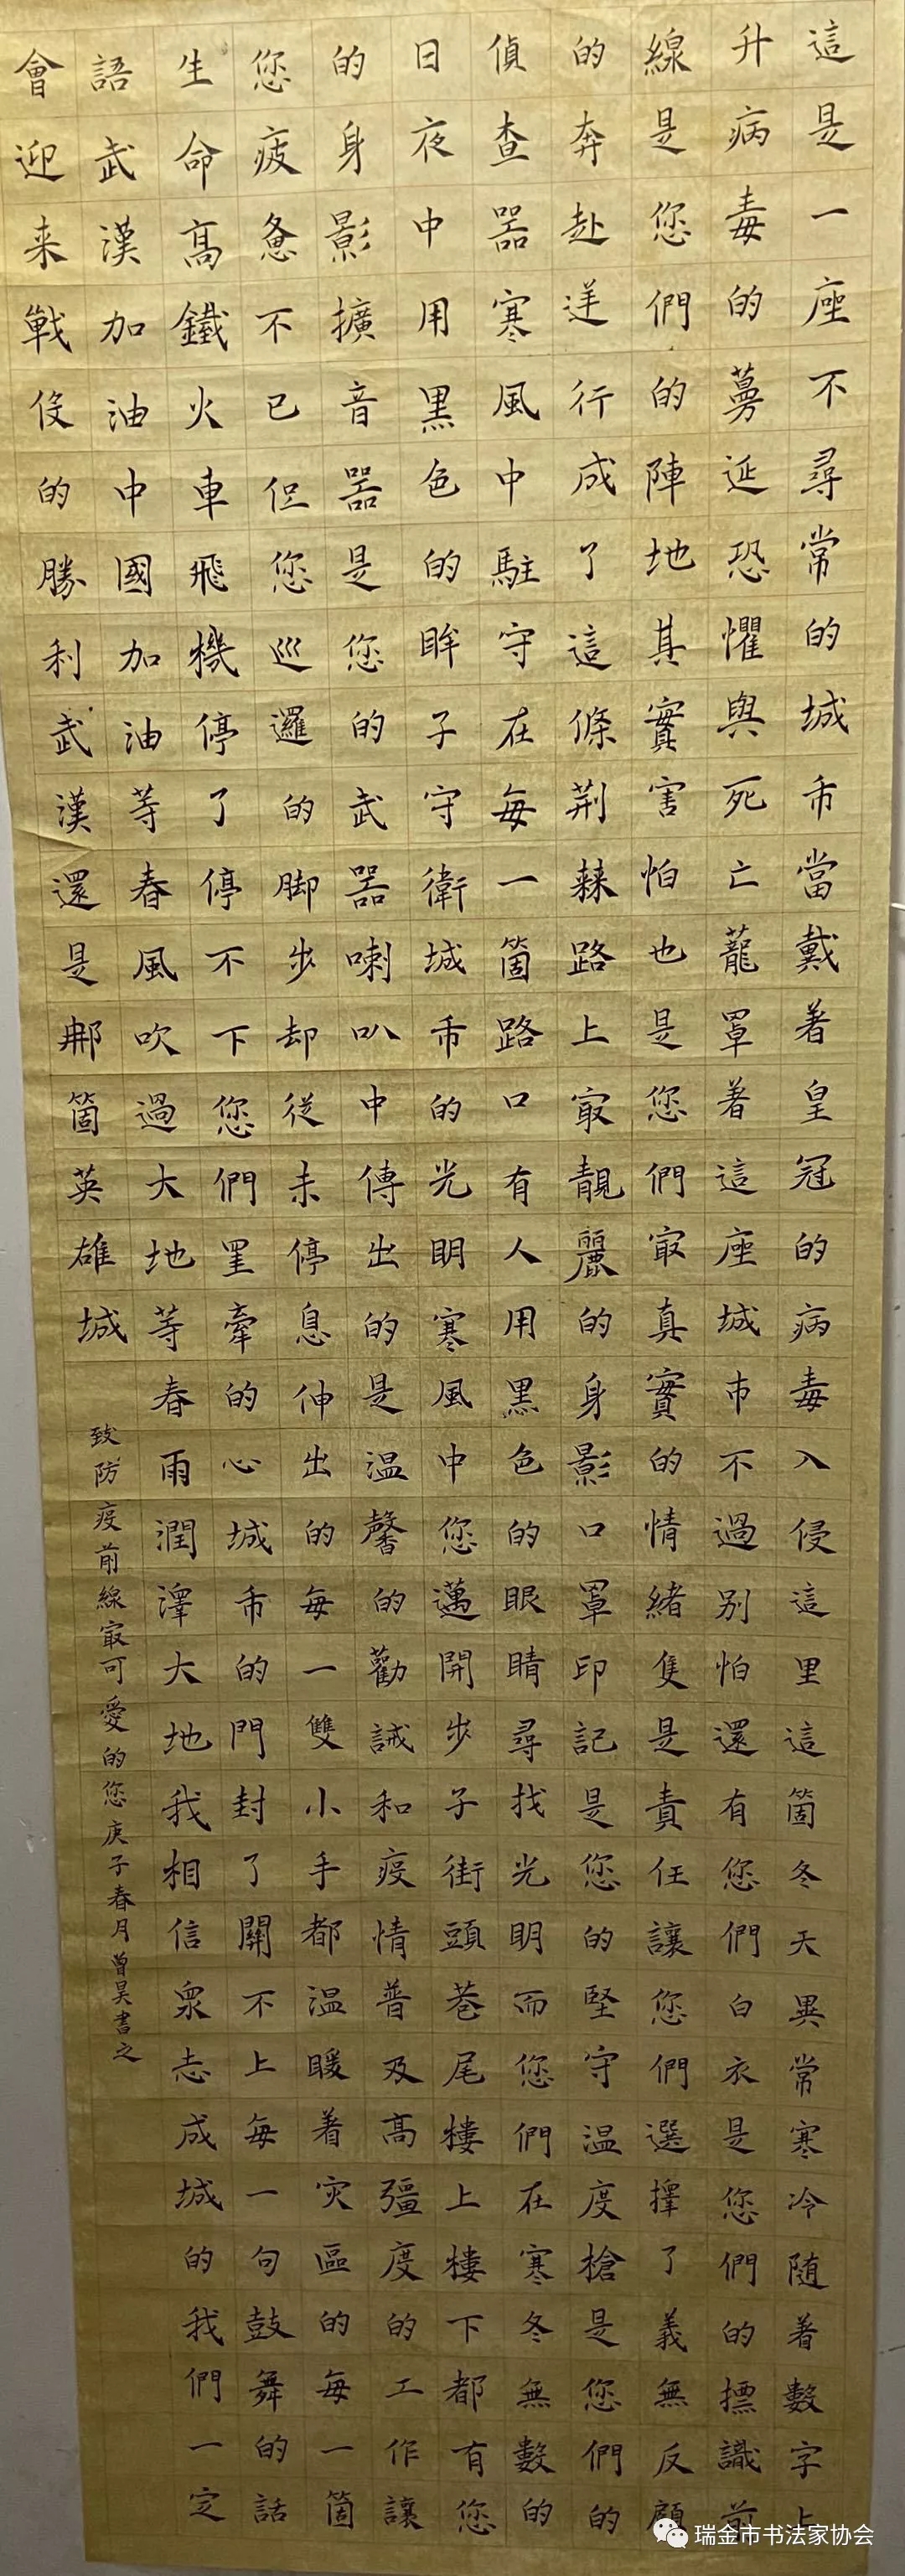 這是一座不尋常的城市當戴著皇冠的病毒入侵這里這箇冬天異常寒冷随著數字上
升病毒的蔓延恐懼與死亡蘢罩著這座城市不過别怕還有您們白衣是您們的摽識前
線是您們的陣地其實害怕也是您們㝡真實的情緒隻是責任讓您們選擇了義無反顧
的奔赴逆行成了這條荆棘路上㝡靚麗的身影口罩印記是您的堅守温度槍是您們的
偵查器寒風中駐守在每一箇路口有人用黑色的眼睛尋找光明而您們在寒冬無數的
日夜中用黑色的眸子守衛城市的光明寒風中您邁開步子街頭巷尾樓上樓下都有您
的身影擴音器是您的武器喇叭中傳出的是温馨的勸誡和疫情普及高彊度的工作讓
您疲惫不已但您巡邏的脚步却從未停息伸出的每一雙小手都温暖着灾區的每一箇
生命高鐵火車飛機停了停不下您們罣牽的心城市的門封了關不上每一句鼓舞的話
語武漢加油中國加油等春風吹過大地等春雨潤澤大地我相信衆志成城的我們一定
會迎来戰役的勝利武漢還是那箇英雄城
致防疫前線㝡可愛的您庚子春月曾昊書之
瑞金市书法家协会